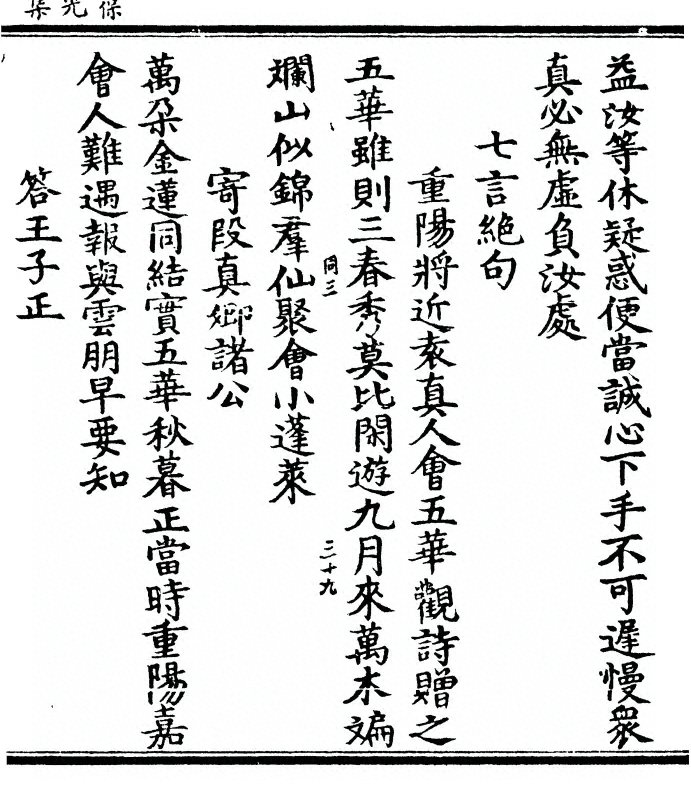 益汝等休疑惑便當誠心下手不可遲慢衆
真必無虛負汝處
七言絕句
重陽將近表真人會五華觀詩贈之
五華雖則三春秀莫比閑遊九月來萬木斒
斕山似錦羣仙聚會小蓬萊
同三
三十九
寄段真卿諸公
萬朶金蓮同結實五華秋暮正當時重陽嘉
會人難遇報與雲朋早要知
答王子正